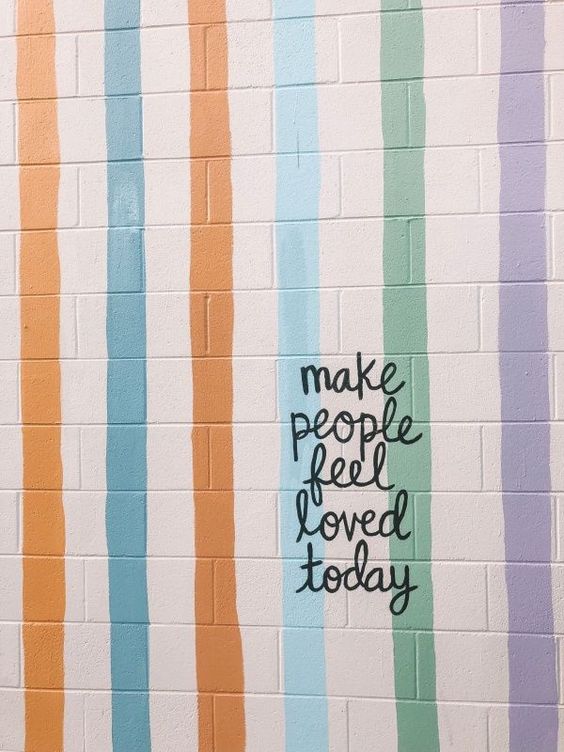 make
people
feel
loved
today